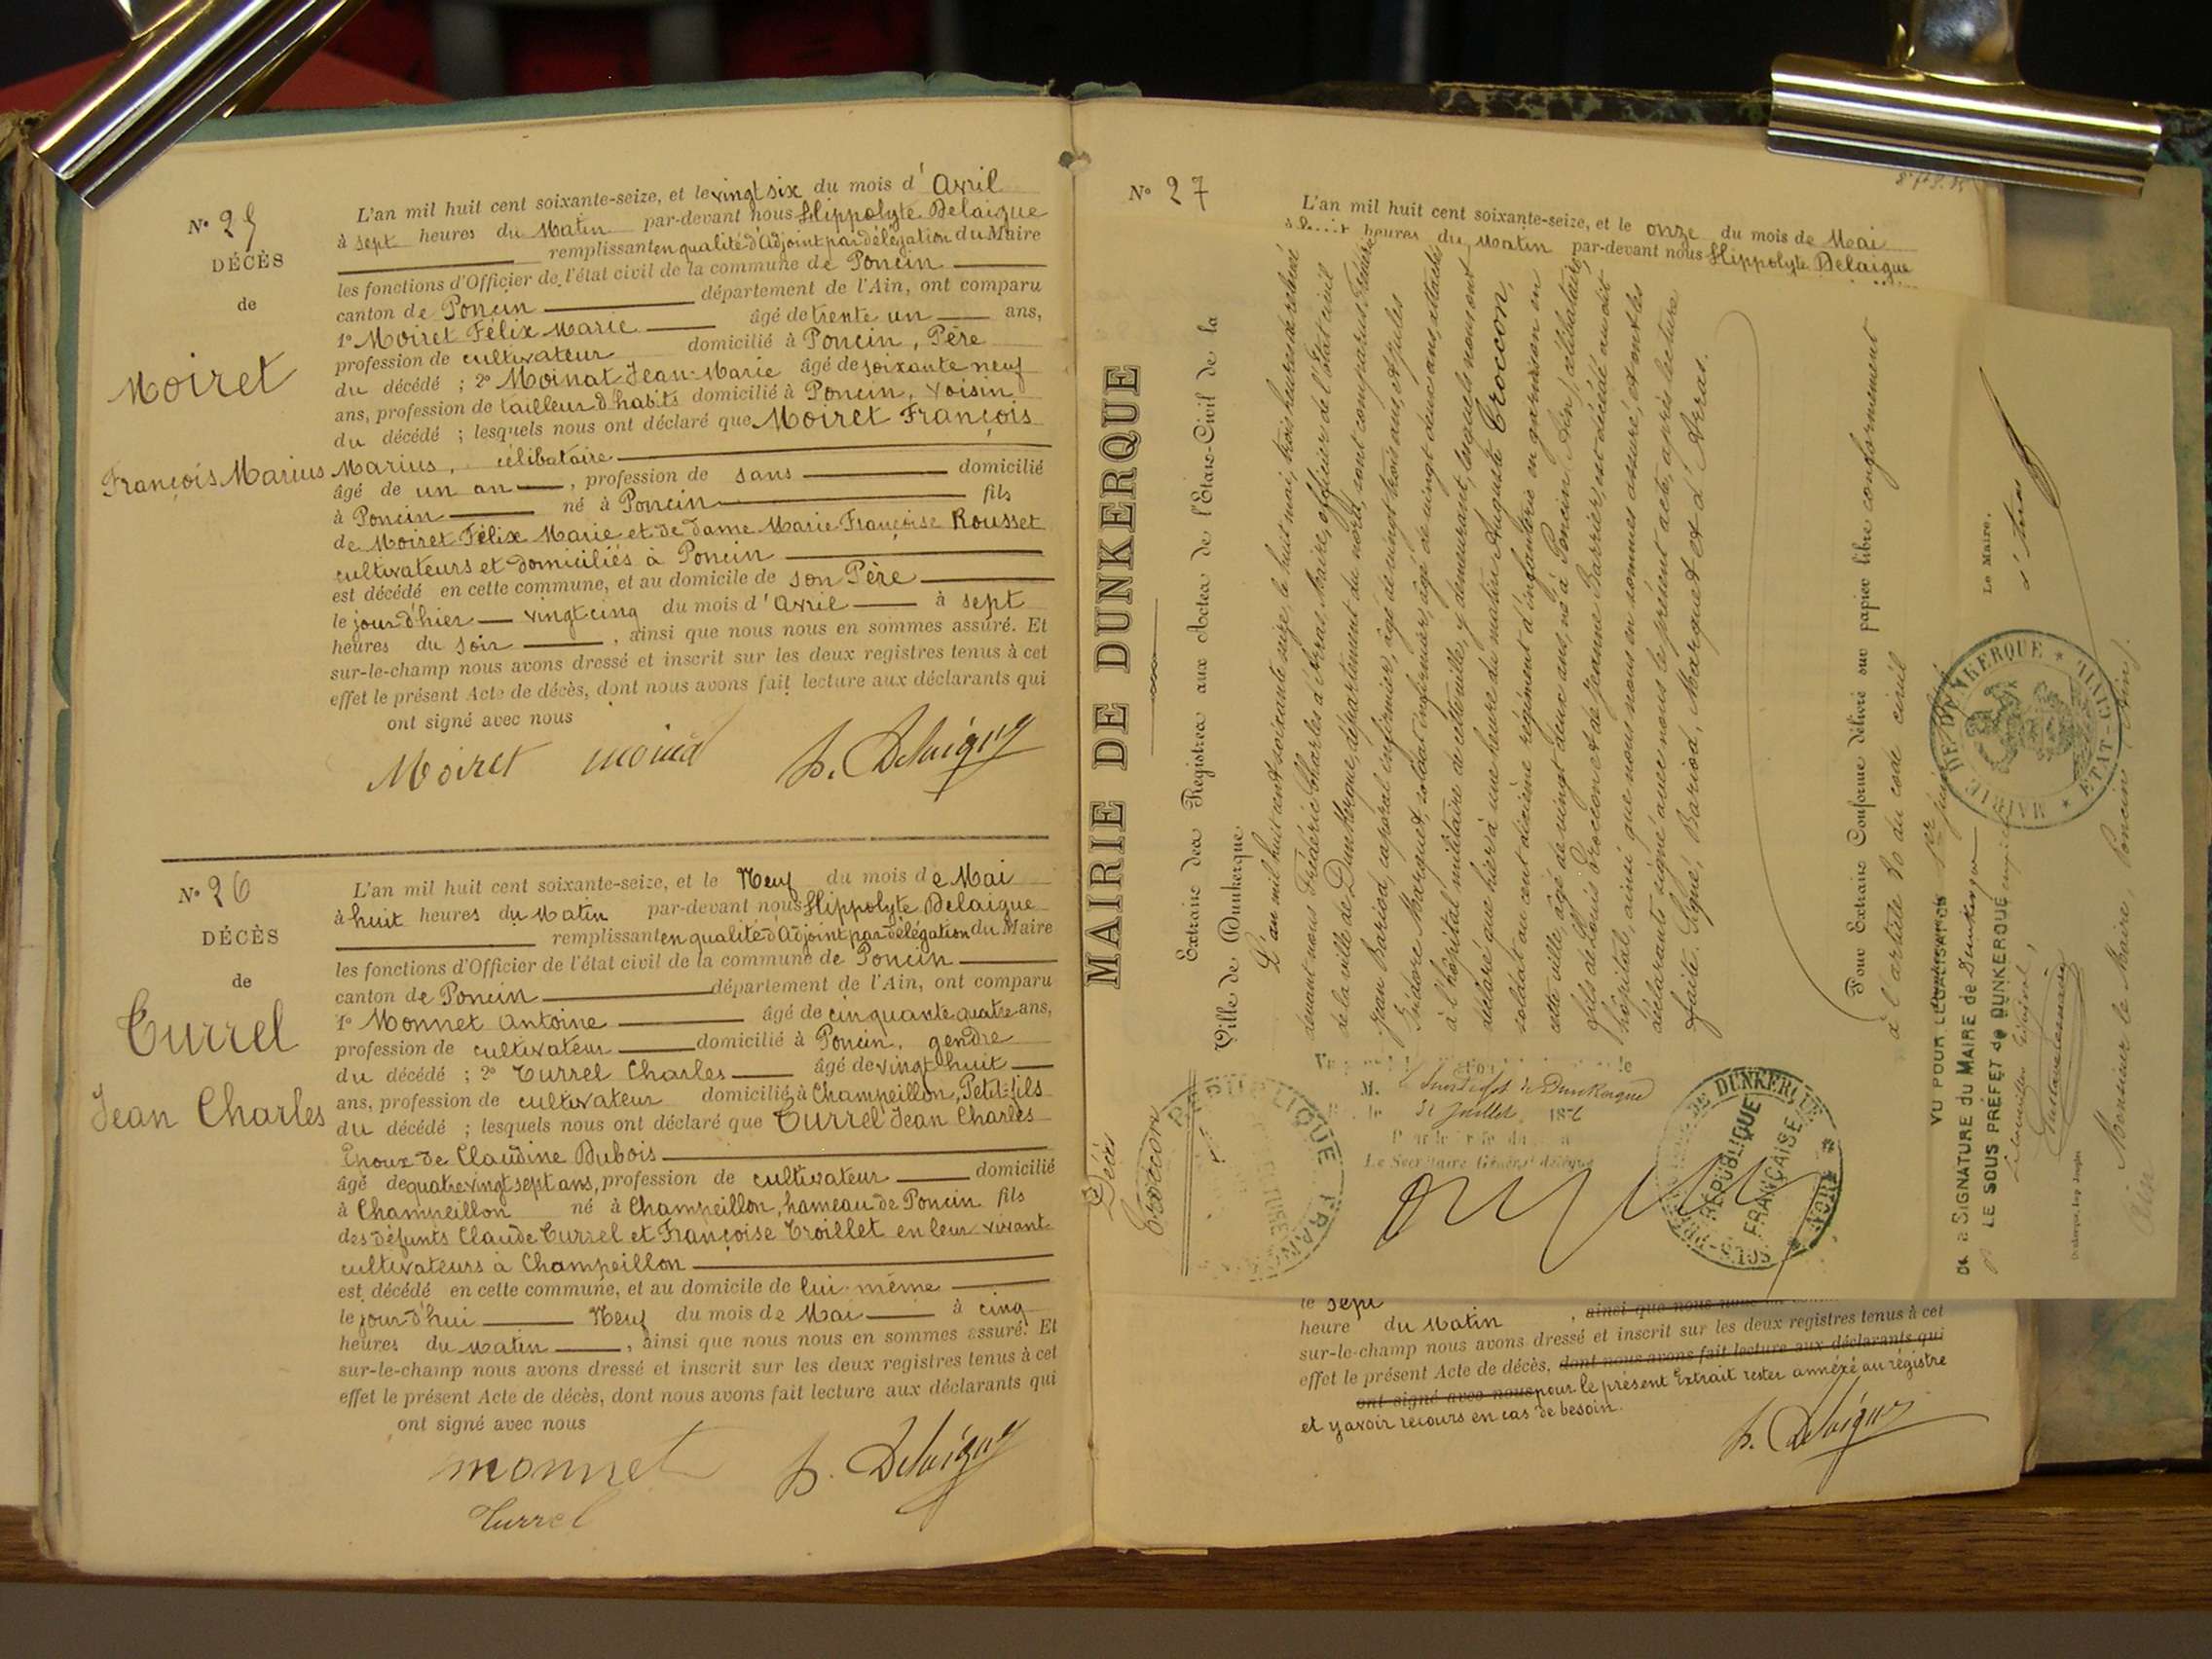 N° 25
DÉCÈS
de
Moiret
François Marius
L'an mil huit cent soixante-seize, et le vingt six du mois d'Avril
à sept heures du Matin par-devant nous Hippolyte Delaigue
remplissant en qualité d'Adjoint par délégation du Maire
les fonctions d'Officier de l'état civil de la commune de Poncin
canton de Poncin département de l'Ain, ont comparu
1° Moiret Félix Marie âgé de trente un ans,
profession de cultivateur domicilié à Poncin, Père
du décédé ; 2° Moinat Jean-Marie âgé de soixante neuf
ans, profession de tailleur d'habits domicilié à Poncin, Voisin
du décédé ; lesquels nous ont déclaré que Moiret François
Marius, célibataire
âgé de un an, profession de sans domicilié
à Poncin né à Poncin fils
de Moiret Félix Marie et de dame Marie Françoise Rousset
cultivateurs et domiciliés à Poncin
est décédé en cette commune, et au domicile de son Père
le jour d'hier vingt cinq du mois d'Avril à sept
heures du soir, ainsi que nous nous en sommes assuré. Et
sur-le-champ nous avons dressé et inscrit sur les deux registres tenus à cet
effet le présent Acte de décès, dont nous avons fait lecture aux déclarants qui
ont signé avec nous
Moiret H. Delaigue
N° 26
DÉCÈS
de
Turrel
Jean Charles
L'an mil huit cent soixante-seize, et le Neuf du mois de Mai
à huit heures du Matin par-devant nous Hippolyte Delaigue
remplissant en qualité d'Adjoint par délégation du Maire
les fonctions d'Officier de l'état civil de la commune de Poncin
canton de Poncin département de l'Ain, ont comparu
1° Monnet Antoine âgé de cinquante quatre ans,
profession de cultivateur domicilié à Poncin, gendre
du décédé ; 2° Turrel Charles âgé de vingt huit
ans, profession de cultivateur domicilié à Champeillon, Petit-fils
du décédé ; lesquels nous ont déclaré que Turrel Jean Charles
Epoux de Claudine Dubois
âgé de quatre vingt sept ans, profession de cultivateur domicilié
à Champeillon né à Champeillon, hameau de Poncin fils
des défunts Claude Turrel et Françoise Troillet en leur vivant
cultivateurs à Champeillon
est décédé en cette commune, et au domicile de lui-même
le jour d'hui Neuf du mois de Mai à cinq
heures du matin, ainsi que nous nous en sommes assuré. Et
sur-le-champ nous avons dressé et inscrit sur les deux registres tenus à cet
effet le présent Acte de décès, dont nous avons fait lecture aux déclarants qui
ont signé avec nous
Monnet H. Delaigue
Turrel
N° 27
L'an mil huit cent soixante-seize, et le onze du mois de Mai
heures du Matin par-devant nous Hippolyte Delaigue
MAIRIE DE DUNKERQUE
Extrait des Registres aux Actes de l'État-Civil de la
Ville de Dunkerque
Décès
Troccon
L'an mil huit cent soixante seize, le huit mai, trois heures de relevé
devant nous Frédéric Charles d'Arras Maire, officier de l'état civil
de la ville de Dunkerque, département du nord, sont comparus Frédéric
Jean Bariod, caporal infirmier, âgé de vingt trois ans, et Jules
Isidore Marquet, soldat infirmier, âgé de vingt deux ans, attachés
à l'hôpital militaire de cette ville, y demeurant, lesquels nous ont
déclaré que hier à une heure du matin Auguste Troccon,
soldat au cent dixième régiment d'infanterie en garnison en
cette ville, âgé de vingt deux ans, né à Poncin (Ain), célibataire,
fils de Louis Troccon et de Jeanne Barrier, est décédé au dit
hôpital, ainsi que nous nous en sommes assuré, et ont les
déclarants signé avec nous le présent acte, après lecture
faite. Signé, Bariod, Marquet et d'Arras.
Pour Extrait Conforme délivré sur papier libre conformément
à l'article 80 du code civil
Le Maire,
d'Arras
MAIRIE DE DUNKERQUE ★ ÉTAT-CIVIL ★
VU POUR LÉGALISATION
De la SIGNATURE du MAIRE de Dunkerque
LE SOUS PRÉFET de DUNKERQUE
Monsieur le Maire, Poncin (Ain).
Ain
M. Sous Préfet de Dunkerque
Juillet 1876
Le Secrétaire Général délégué
RÉPUBLIQUE FRANÇAISE
le sept
heure du Matin, ainsi que nous nous en
sur-le-champ nous avons dressé et inscrit sur les deux registres tenus à cet
effet le présent Acte de décès, dont nous avons fait lecture aux déclarants qui
ont signé avec nous pour le présent Extrait rester annéxé au régistre
et y avoir recours en cas de besoin.
H. Delaigue